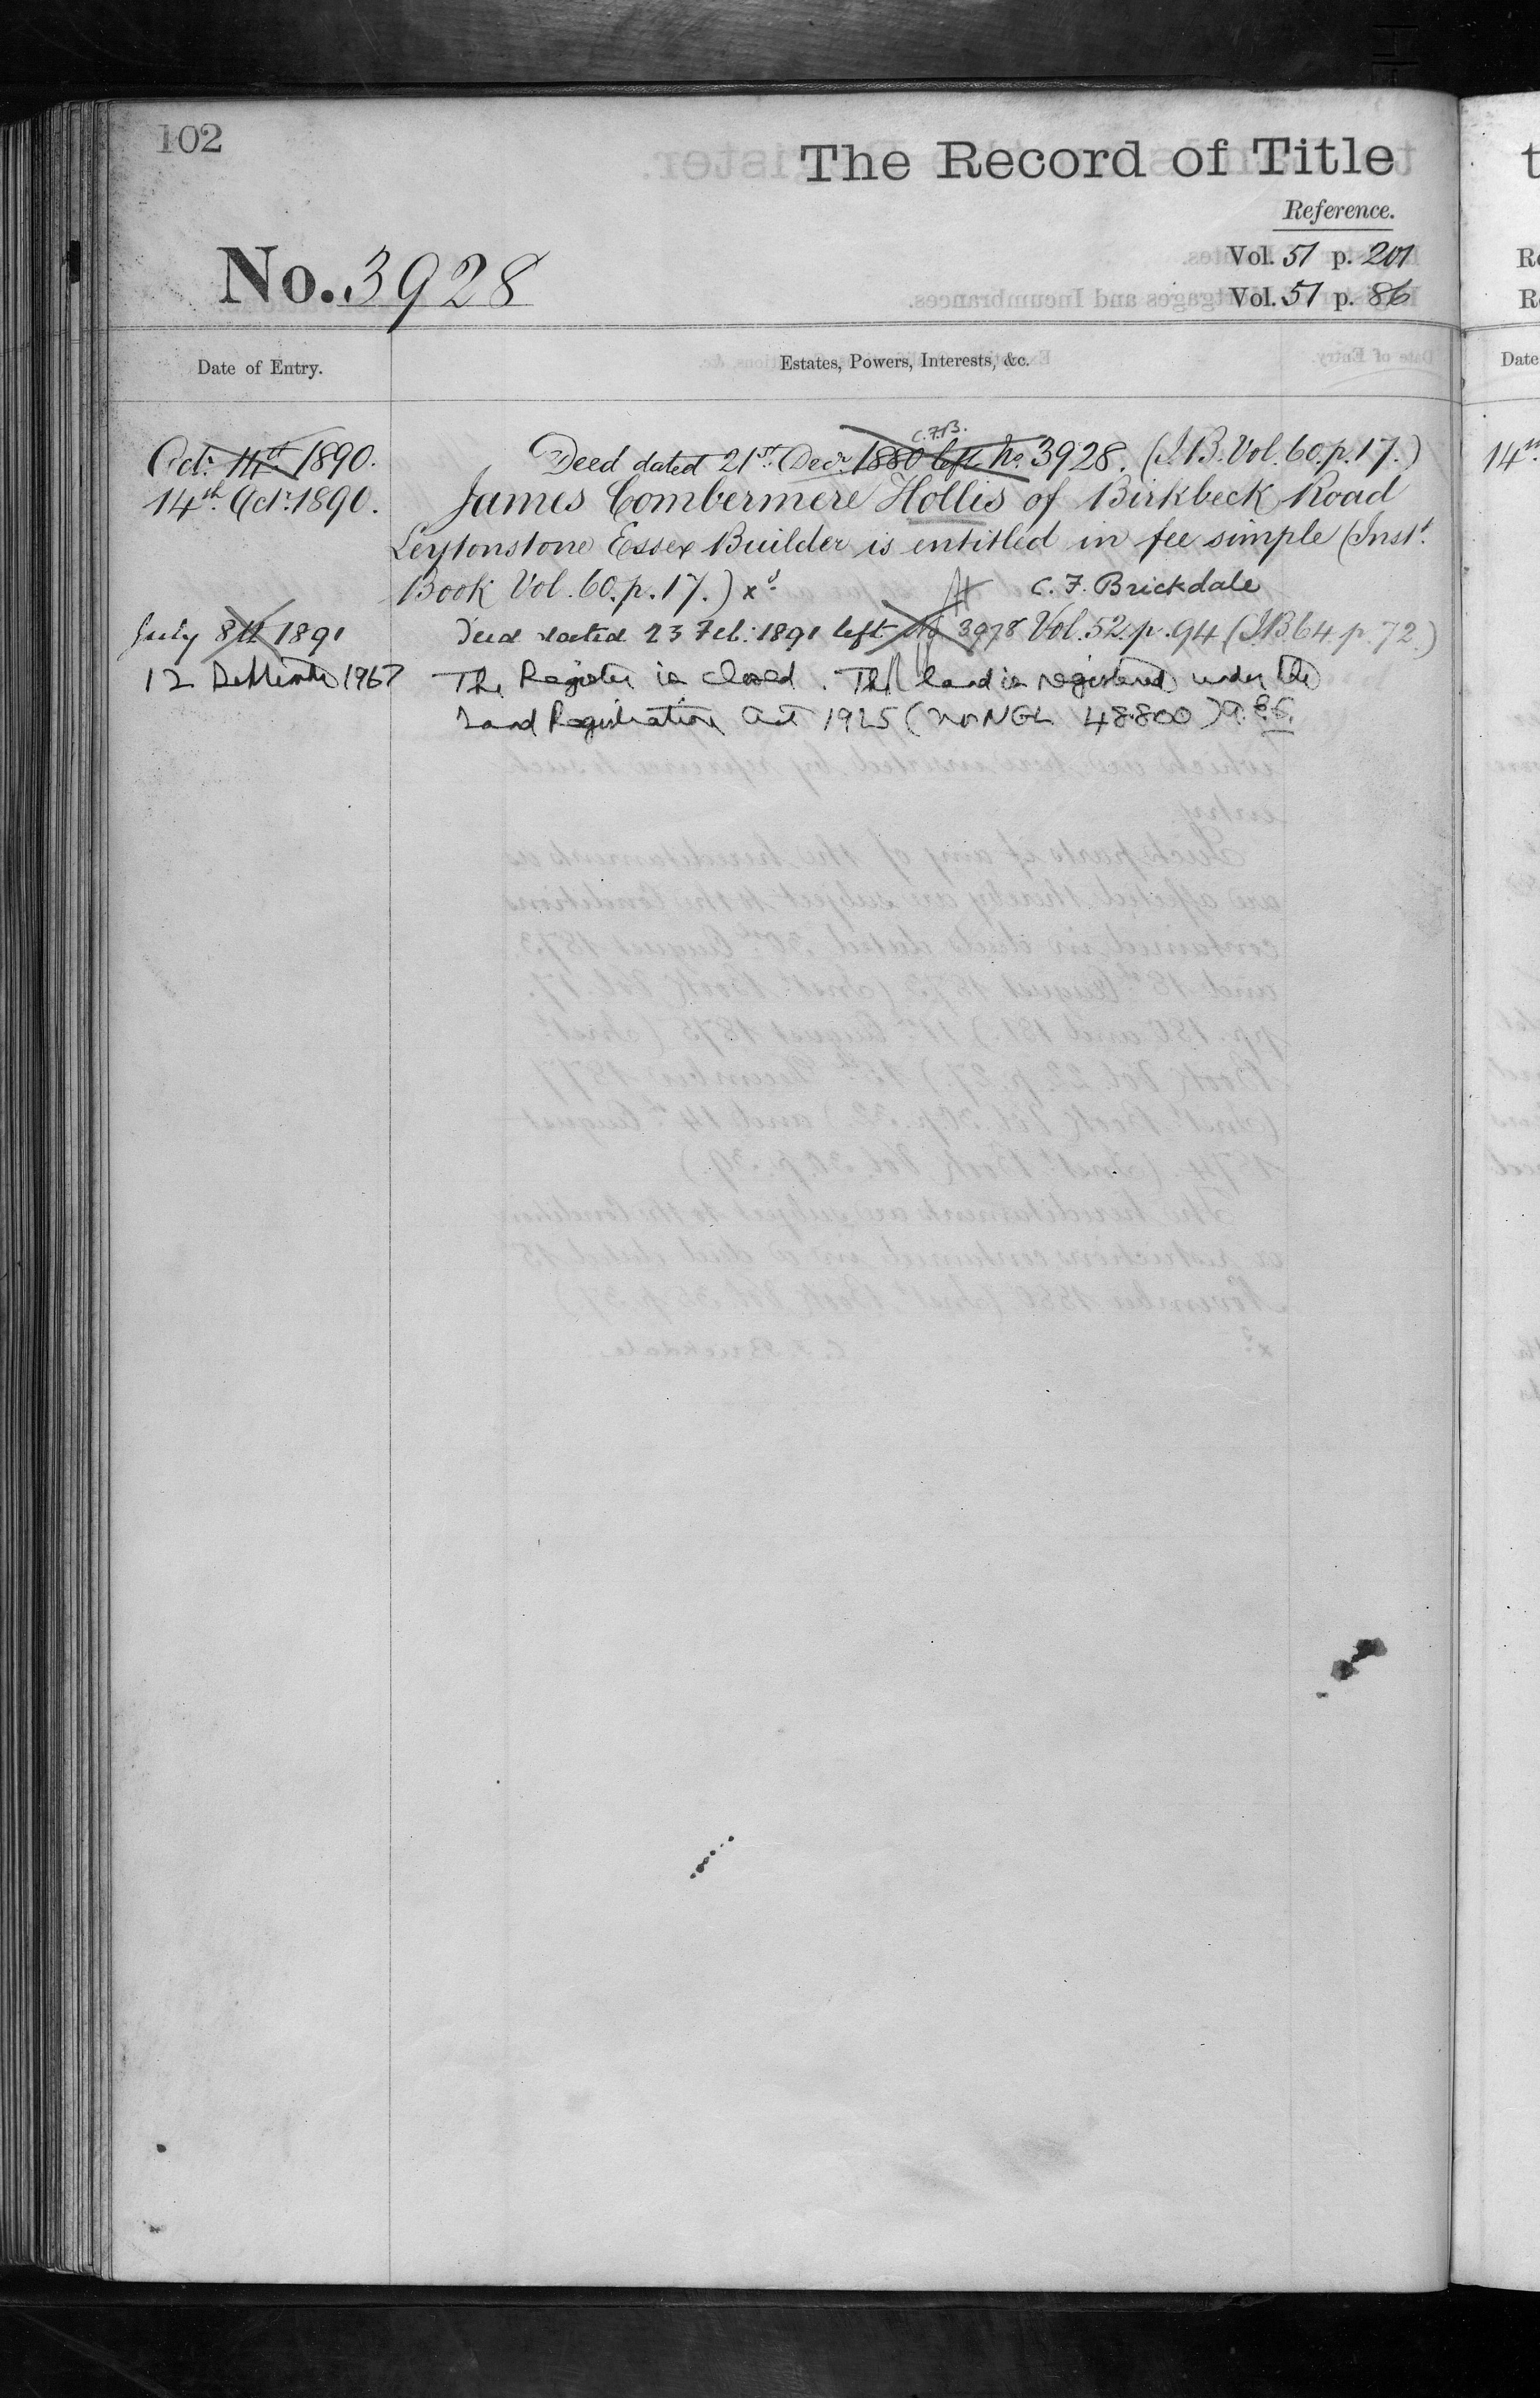 102
The Record of Title
Reference.
Vol. 51 p. 201
No. 3928
Vol. 51 p. 86
Date of Entry.
Estates, Powers, Interests, &c.
Oct: 14th 1890.
C.F.B.
Deed dated 21st Decr 1880 left No. 3928. (I.B. Vol. 60. p. 17.)
14th Octr 1890.
James Combermere Hollis of Birkbeck Road
Leytonstone Essex Builder is entitled in fee simple (Inst.
Book Vol. 60. p. 17.) x
C. F. Brickdale
July 8th 1891
Deed dated 23 Feb. 1891 left No 3978 Vol. 52. p. 94 (I.B. 64. p. 72.)
12 1967
The Register is closed. The land is registered under the
Land Registration Act 1925 (no NGL 48800)
Date
14th